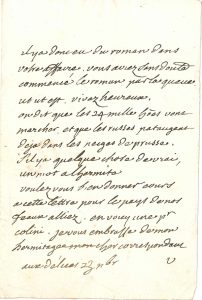 il y a donc eu du roman dans
votre affaire. vous avez sans doute
commencé le roman par la queue
ut ut est, vivez heureux.
on dit que les 24 mille hess vont
marcher et que les russes pataugent
deja dans les neiges de prusse.
s'il y a quelque chose de vrai,
un mot a l'hermite
voulez vous bien donner cours
a cette lettre pour le pays de nos
feaux alliez. en voicy une pr
colini. je vous embrasse de mon
hermitage mon cher correspondant
aux délices 23 nbr
V